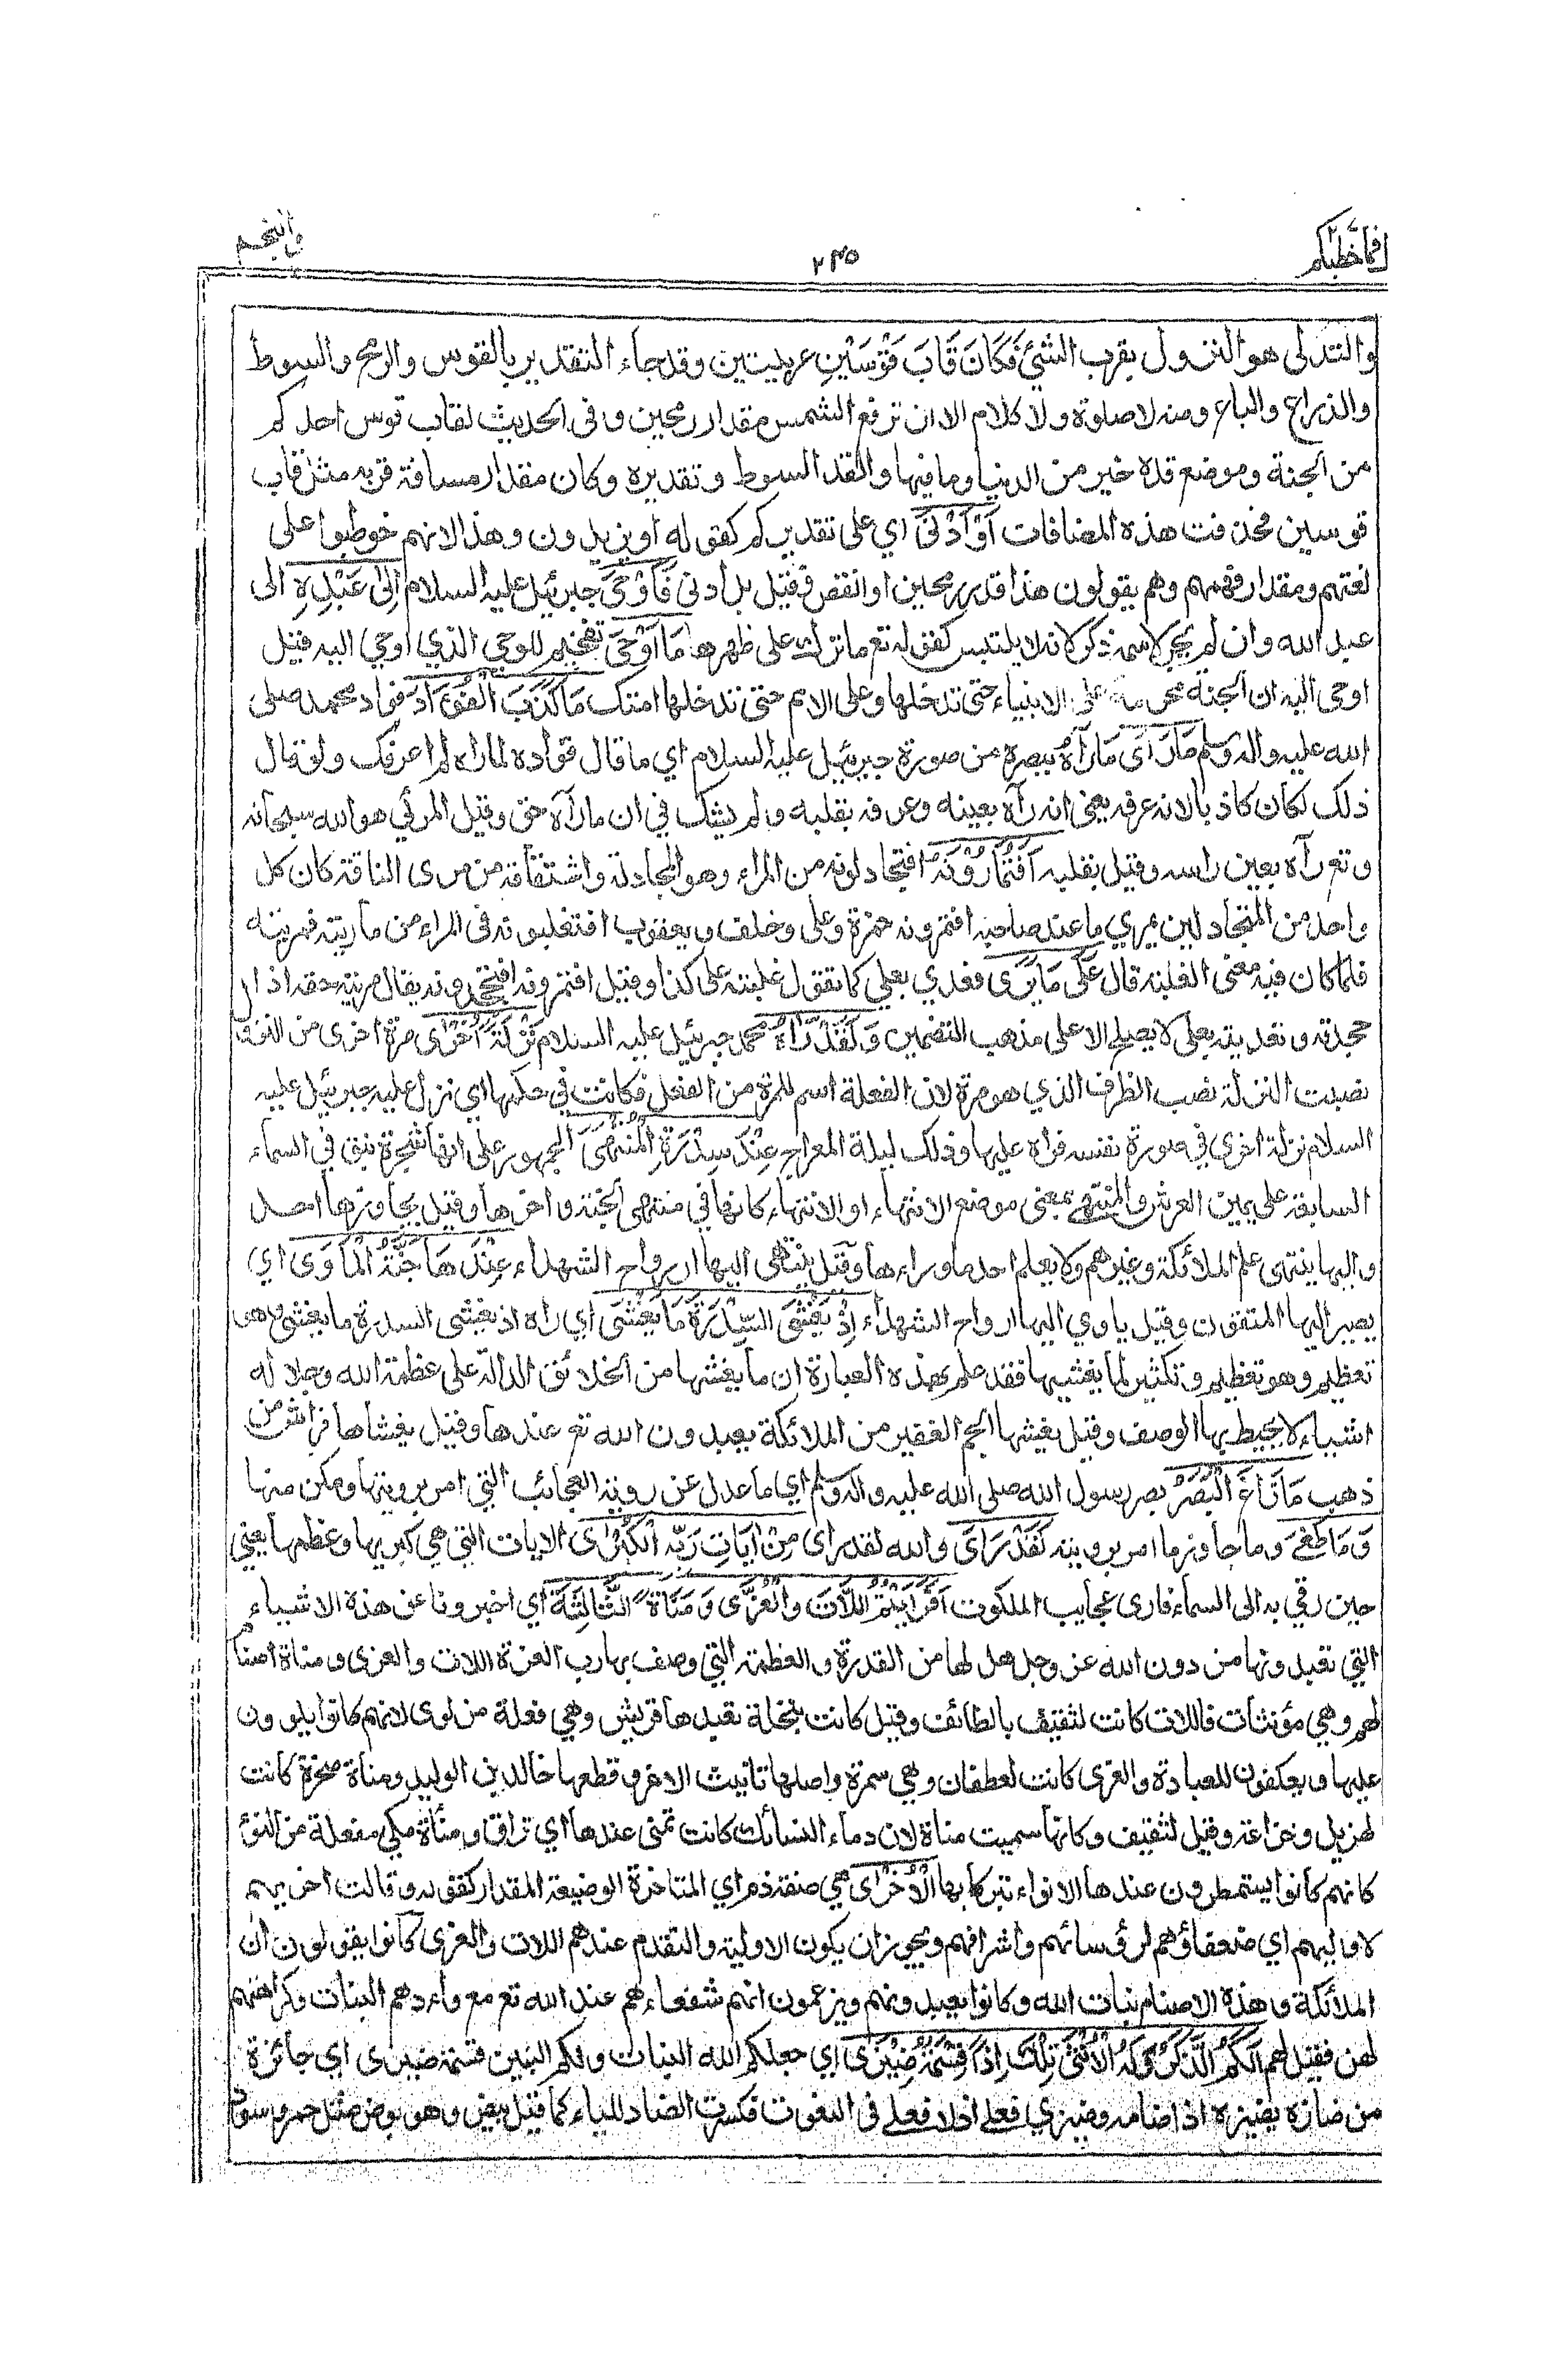 قال فما خطبكم
٢٣٥
والنجم
والتدلى هو النزول بقرب الشئ فَكَانَ قَابَ قَوْسَيْنِ عربيتين وقد جاء التقدير بالقوس والرمح والسوط
والذراع والباع ومنه لا صلوة ولا كلام الا ان ترفع الشمس مقدار رمحين و فى الحديث لقاب قوس احدكم
من الجنة وموضع قده خير من الدنيا وما فيها والقد السوط وتقديره وكان مقدار مسافة قربه مثل قاب
قوسين فحذفت هذه المضافات اَوْ اَدْنٰى اي على تقديركم كقوله او يزيدون وهذا لانهم خوطبوا على
لغتهم ومقدار فهمهم وهم يقولون هذا قدر رمحين او انقص وقيل بل ادنى فَاَوْحٰى جبرئيل عليه السلام اِلٰى عَبْدِهٖ الى
عبد الله وان لم يجر لاسمه ذكر لانه لا يلتبس كقوله تع ما ترك على ظهرها مَا اَوْحٰى تفخيم للوحي الذي اوحي اليه قيل
اوحى اليه ان الجنة محرمة على الانبياء حتى تدخلها وعلى الامم حتى تدخلها امتك مَا كَذَبَ الْفُؤَادُ فؤاد محمد صلى
الله عليه واله وسلم مَا رَاٰى ما رآه ببصره من صورة جبرئيل عليه السلام اي ما قال فؤاده لما راه لم اعرفك ولو قال
ذلك لكان كاذبا لانه عرفه يعنى انه رآه بعينه وعرفه بقلبه ولم يشك في ان ما رآه حق وقيل المرئي هو الله سبحانه
وتع رآه بعين راسه وقيل بقلبه اَفَتُمَارُوْنَهٗ افتجادلونه من المراء وهو المجادلة واشتقاقه من مرى الناقة كان كل
واحد من المتجادلين يمري ما عند صاحبه افتمرونه حمزة وعلى وخلف ويعقوب افتغلبونه فى المراء من ماريته فمريته
فلما كان فيه معنى الغلبة قال عَلٰى مَا يَرٰى فعدي بعلى كما تقول غلبته على كذا وقيل افتمرونه افتجحدونه يقال مريته حقه اذا
جحدته وتعديته بعلى لا يصلح الا على مذهب التضمين وَلَقَدْ رَاٰهُ محمد جبرئيل عليه السلام نَزْلَةً اُخْرٰى مرة اخرى من النزول
نصبت النزلة نصب الظرف الذي هو مرة لان الفعلة اسم للمرة من الفعل فكانت في حكمها اي نزل عليه جبرئيل عليه
السلام نزلة اخرى في صورة نفسه فراه عليها وذلك ليلة المعراج عِنْدَ سِدْرَةِ الْمُنْتَهٰى الجمهور على انها شجرة نبق في السماء
السابعة على يمين العرش والمنتهى بمعنى موضع الانتهاء او الانتهاء كانها في منتهى الجنة واخرها وقيل لم يجاوزها احد
واليها ينتهى علم الملائكة وغيرهم ولا يعلم احد ما وراءها وقيل ينتهى اليها ارواح الشهداء عِنْدَهَا جَنَّةُ الْمَاْوٰى اي
يصير اليها المتقون وقيل ياوي اليها ارواح الشهداء اِذْ يَغْشَى السِّدْرَةَ مَا يَغْشٰى اي راه اذ يغشى السدرة ما يغشى وهو
تعظيم وهو تعظيم وتكثير لما يغشيها فقد علم بهذه العبارة ان ما يغشها من الخلائق الدالة على عظمة الله وجلاله
اشياء لا يحيط بها الوصف وقيل يغشها الجم الغفير من الملائكة يعبدون الله تع عندها وقيل يغشاها فراش من
ذهب مَا زَاغَ الْبَصَرُ بصر رسول الله صلى الله عليه واله وسلم اي ما عدل عن روية العجائب التي امر برويتها ومكن منها
وَمَا طَغٰى وما جاوز ما امر برويته لَقَدْ رَاٰى والله لقد راى مِنْ اٰيَاتِ رَبِّهِ الْكُبْرٰى الايات التي هي كبريها وعظمها يعني
حين رقي به الى السماء فارى عجايب الملكوت اَفَرَاَيْتُمُ اللَّاتَ وَالْعُزّٰى وَمَنَاةَ الثَّالِثَةَ اي اخبرونا عن هذه الاشياء
التي تعبدونها من دون الله عز وجل هل لها من القدرة والعظمة التي وصف بها رب العزة اللات والعزى ومناة اصنام
لهم وهي مؤنثات فاللات كانت لثقيف بالطائف وقيل كانت بنخلة تعبدها قريش وهي فعلة من لوى لانهم كانوا يلوون
عليها ويعكفون للعبادة والعزى كانت لغطفان وهي سمرة واصلها تانيث الاعز وقطعها خالد بن الوليد ومناة صخرة كانت
لهذيل وخزاعة وقيل لثقيف وكانها سميت مناة لان دماء النسائك كانت تمنى عندها اي تراق ومناءة مكي مفعلة من النوء
كانهم كانوا يستمطرون عندها الانواء تبركا بها الْاُخْرٰى هي صفة ذم اي المتاخرة الوضيعة المقدار كقوله وقالت اخريهم
لاوليهم اي ضعفاؤهم لرؤسائهم واشرافهم ويجوز ان يكون الاولية والتقدم عندهم اللات والعزى كانوا يقولون ان
الملائكة وهذه الاصنام بنات الله وكانوا يعبدونهم ويزعمون انهم شفعاءهم عند الله تع مع وأدهم البنات وكراهتهم
لهن فقيل لهم اَلَكُمُ الذَّكَرُ وَلَهُ الْاُنْثٰى تِلْكَ اِذًا قِسْمَةٌ ضِيْزٰى اي جعلكم الله البنات ولكم البنين قسمة ضيزى اي جائزة
من ضازه يضيزه اذا ضامه وضيزي فعلى اذ لا فعلى فى النعوت فكسرت الضاد للياء كما قيل بيض وهو بوض مثل حمر وسود